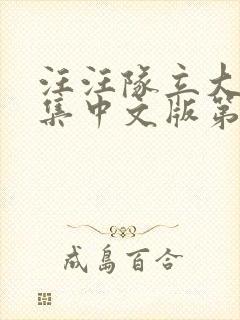 汪汪隊立大
集中文版第
成島百合